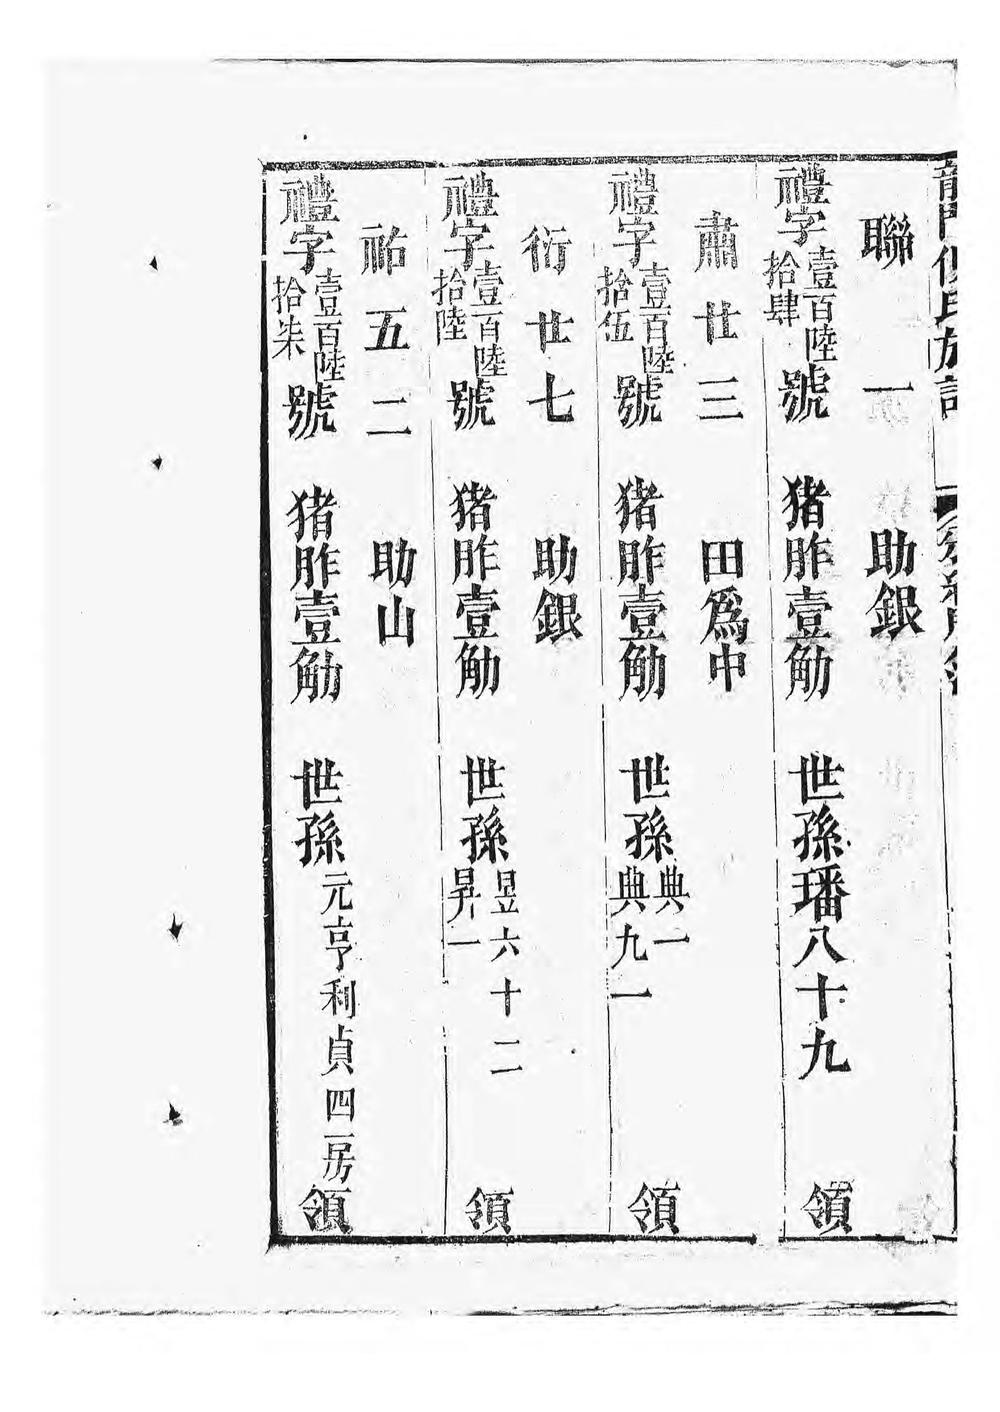 聯一　助銀
禮字壹百陸拾肆號　猪胙壹觔　世孫璠八十九　領
肅廿三　田爲中
禮字壹百陸拾伍號　猪胙壹觔　世孫典一典九一　領
衍廿七　助銀
禮字壹百陸拾陸號　猪胙壹觔　世孫昱六十二昇一　領
祐五二　助山
禮字壹百陸拾柒號　猪胙壹觔　世孫元亨利貞四房　領